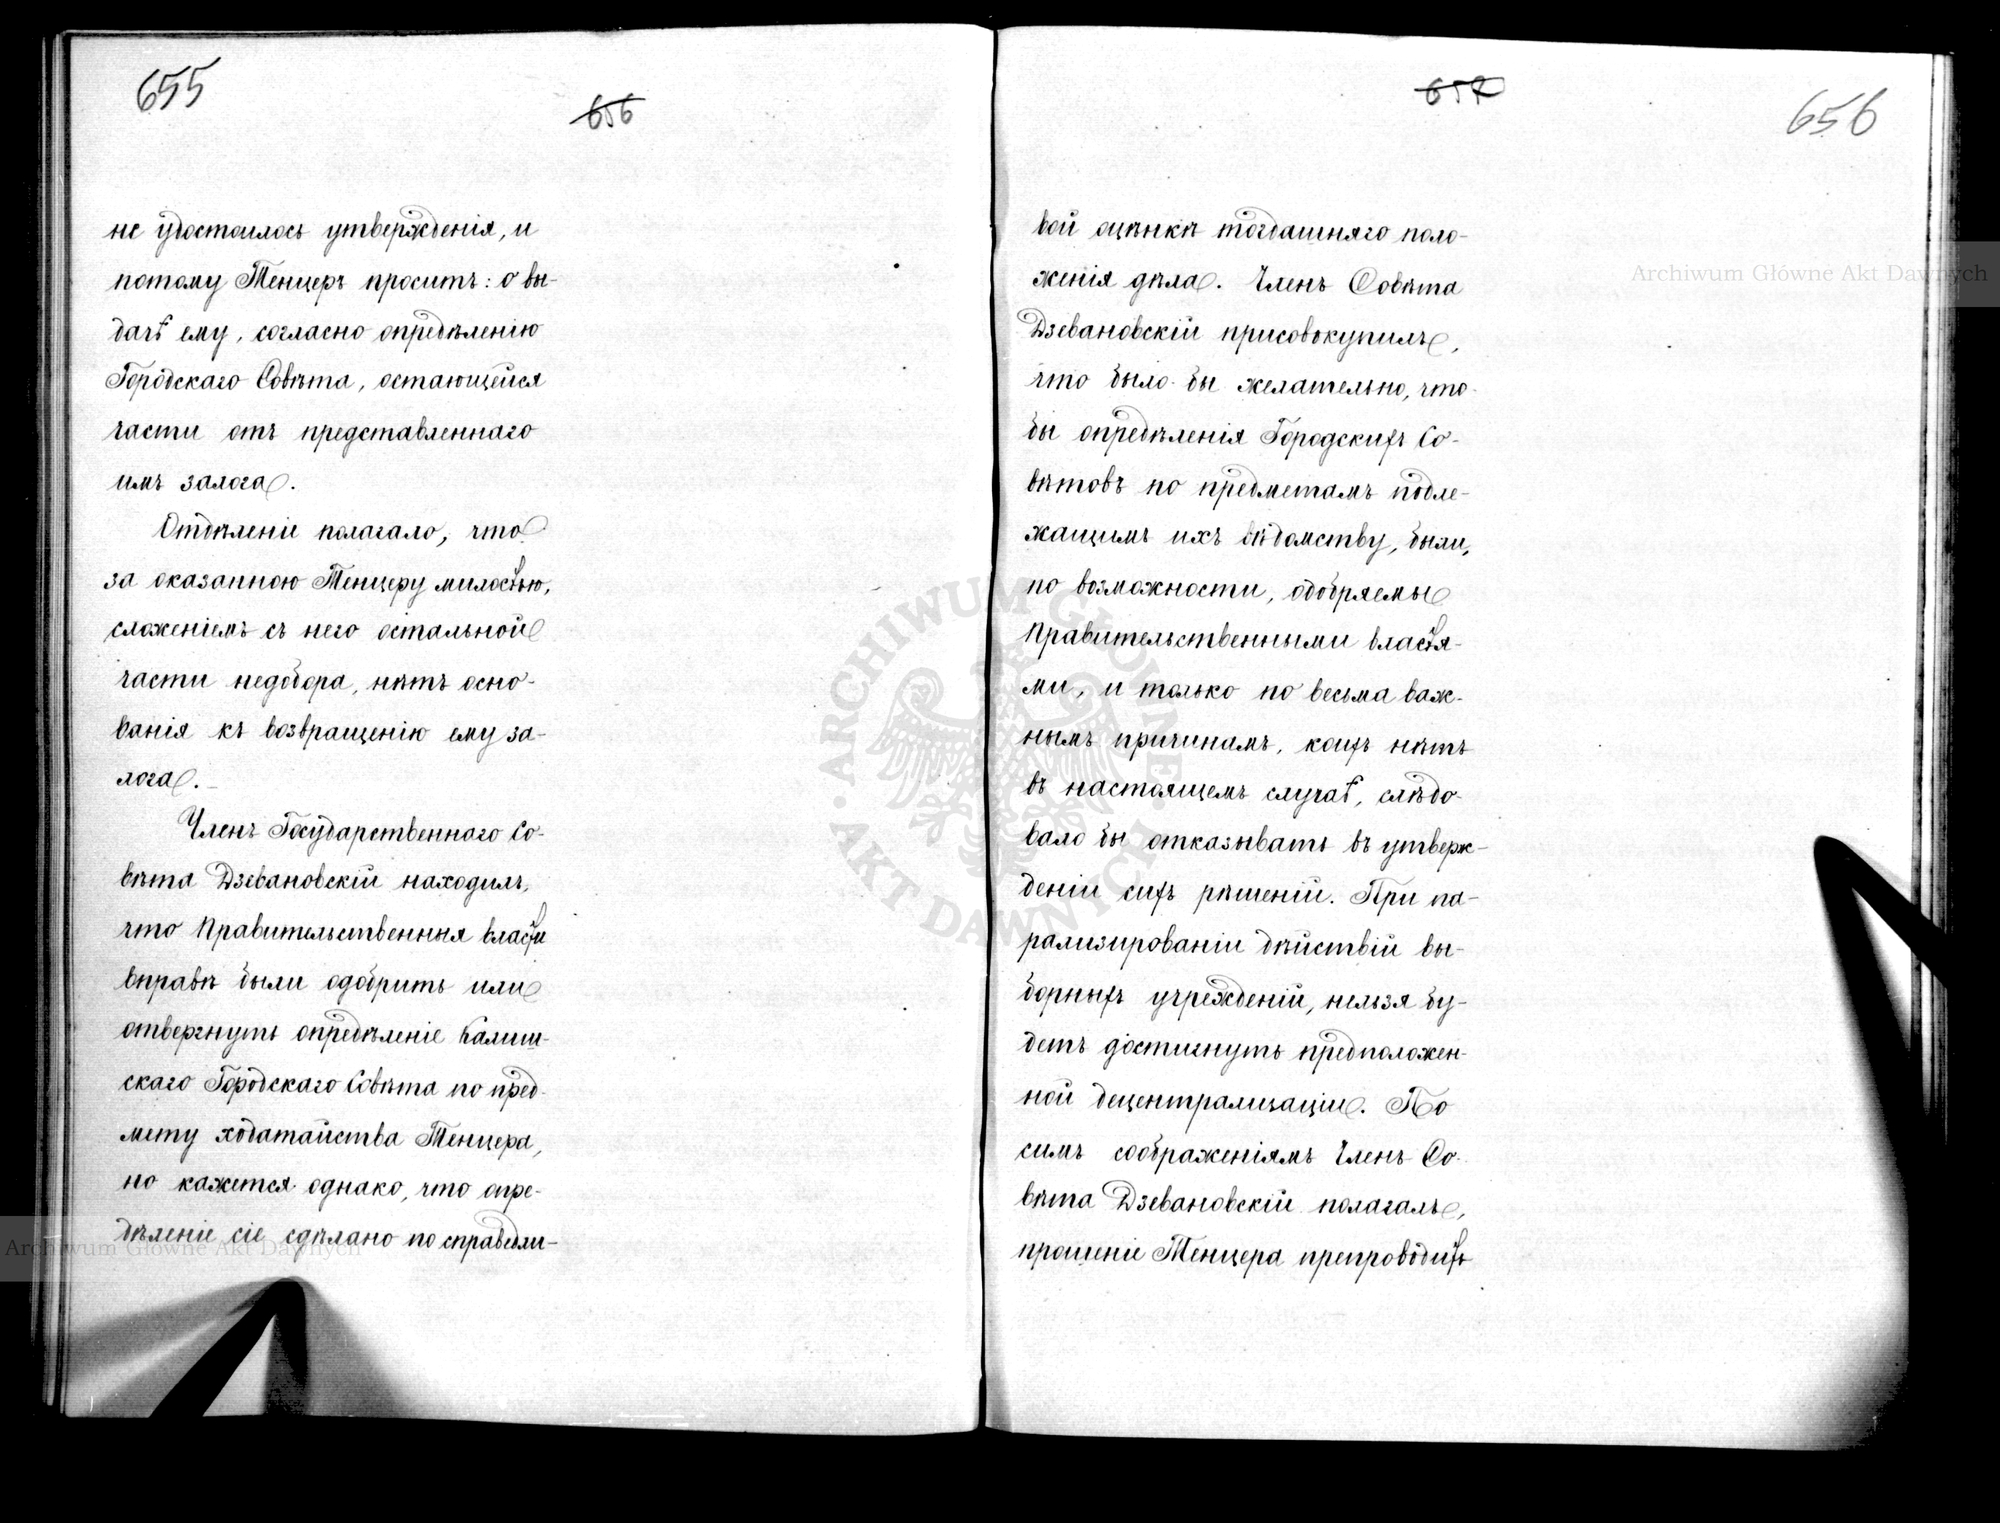 655
656
не удостоилось утвержденія, и
потому Тенцеръ проситъ: о вы-
дачѣ ему, согласно опредѣленію
Городскаго Совѣта, остающейся
части отъ представленнаго
имъ залога.
Отдѣленіе полагало, что
за оказанною Тенцеру милостью,
сложеніемъ съ него остальной
части недобора, нѣтъ осно-
ванія къ возвращенію ему за-
лога.
Членъ Государственнаго Со-
вѣта Дзевановскій находилъ,
что Правительственныя власти
вправѣ были одобрить или
отвергнуть опредѣленіе Калиш-
скаго Городскаго Совѣта по пред-
мету ходатайства Тенцера,
но кажется однако, что опре-
дѣленіе сіе сдѣлано по справедли-
657
656
вой оцѣнкѣ тогдашняго поло-
женія дѣла. Членъ Совѣта
Дзевановскій присовокупилъ,
что было бы желательно, что-
бы опредѣленія Городскихъ Со-
вѣтовъ по предметамъ подле-
жащимъ ихъ вѣдомству, были,
по возможности, одобряемы
Правительственными властя-
ми, и только по весьма важ-
нымъ причинамъ, коихъ нѣтъ
въ настоящемъ случаѣ, слѣдо-
вало бы отказывать въ утверж-
деніи сихъ рѣшеній. При па-
рализированіи дѣйствій вы-
борныхъ учрежденій, нельзя бу-
детъ достигнуть предположен-
ной децентрализаціи. По
симъ соображеніямъ Членъ Со-
вѣта Дзевановскій полагалъ,
прошеніе Тенцера препроводить
Archiwum Główne Akt Dawnych
Archiwum Główne Akt Dawnych
ARCHIWUM GŁÓWNE AKT DAWNYCH